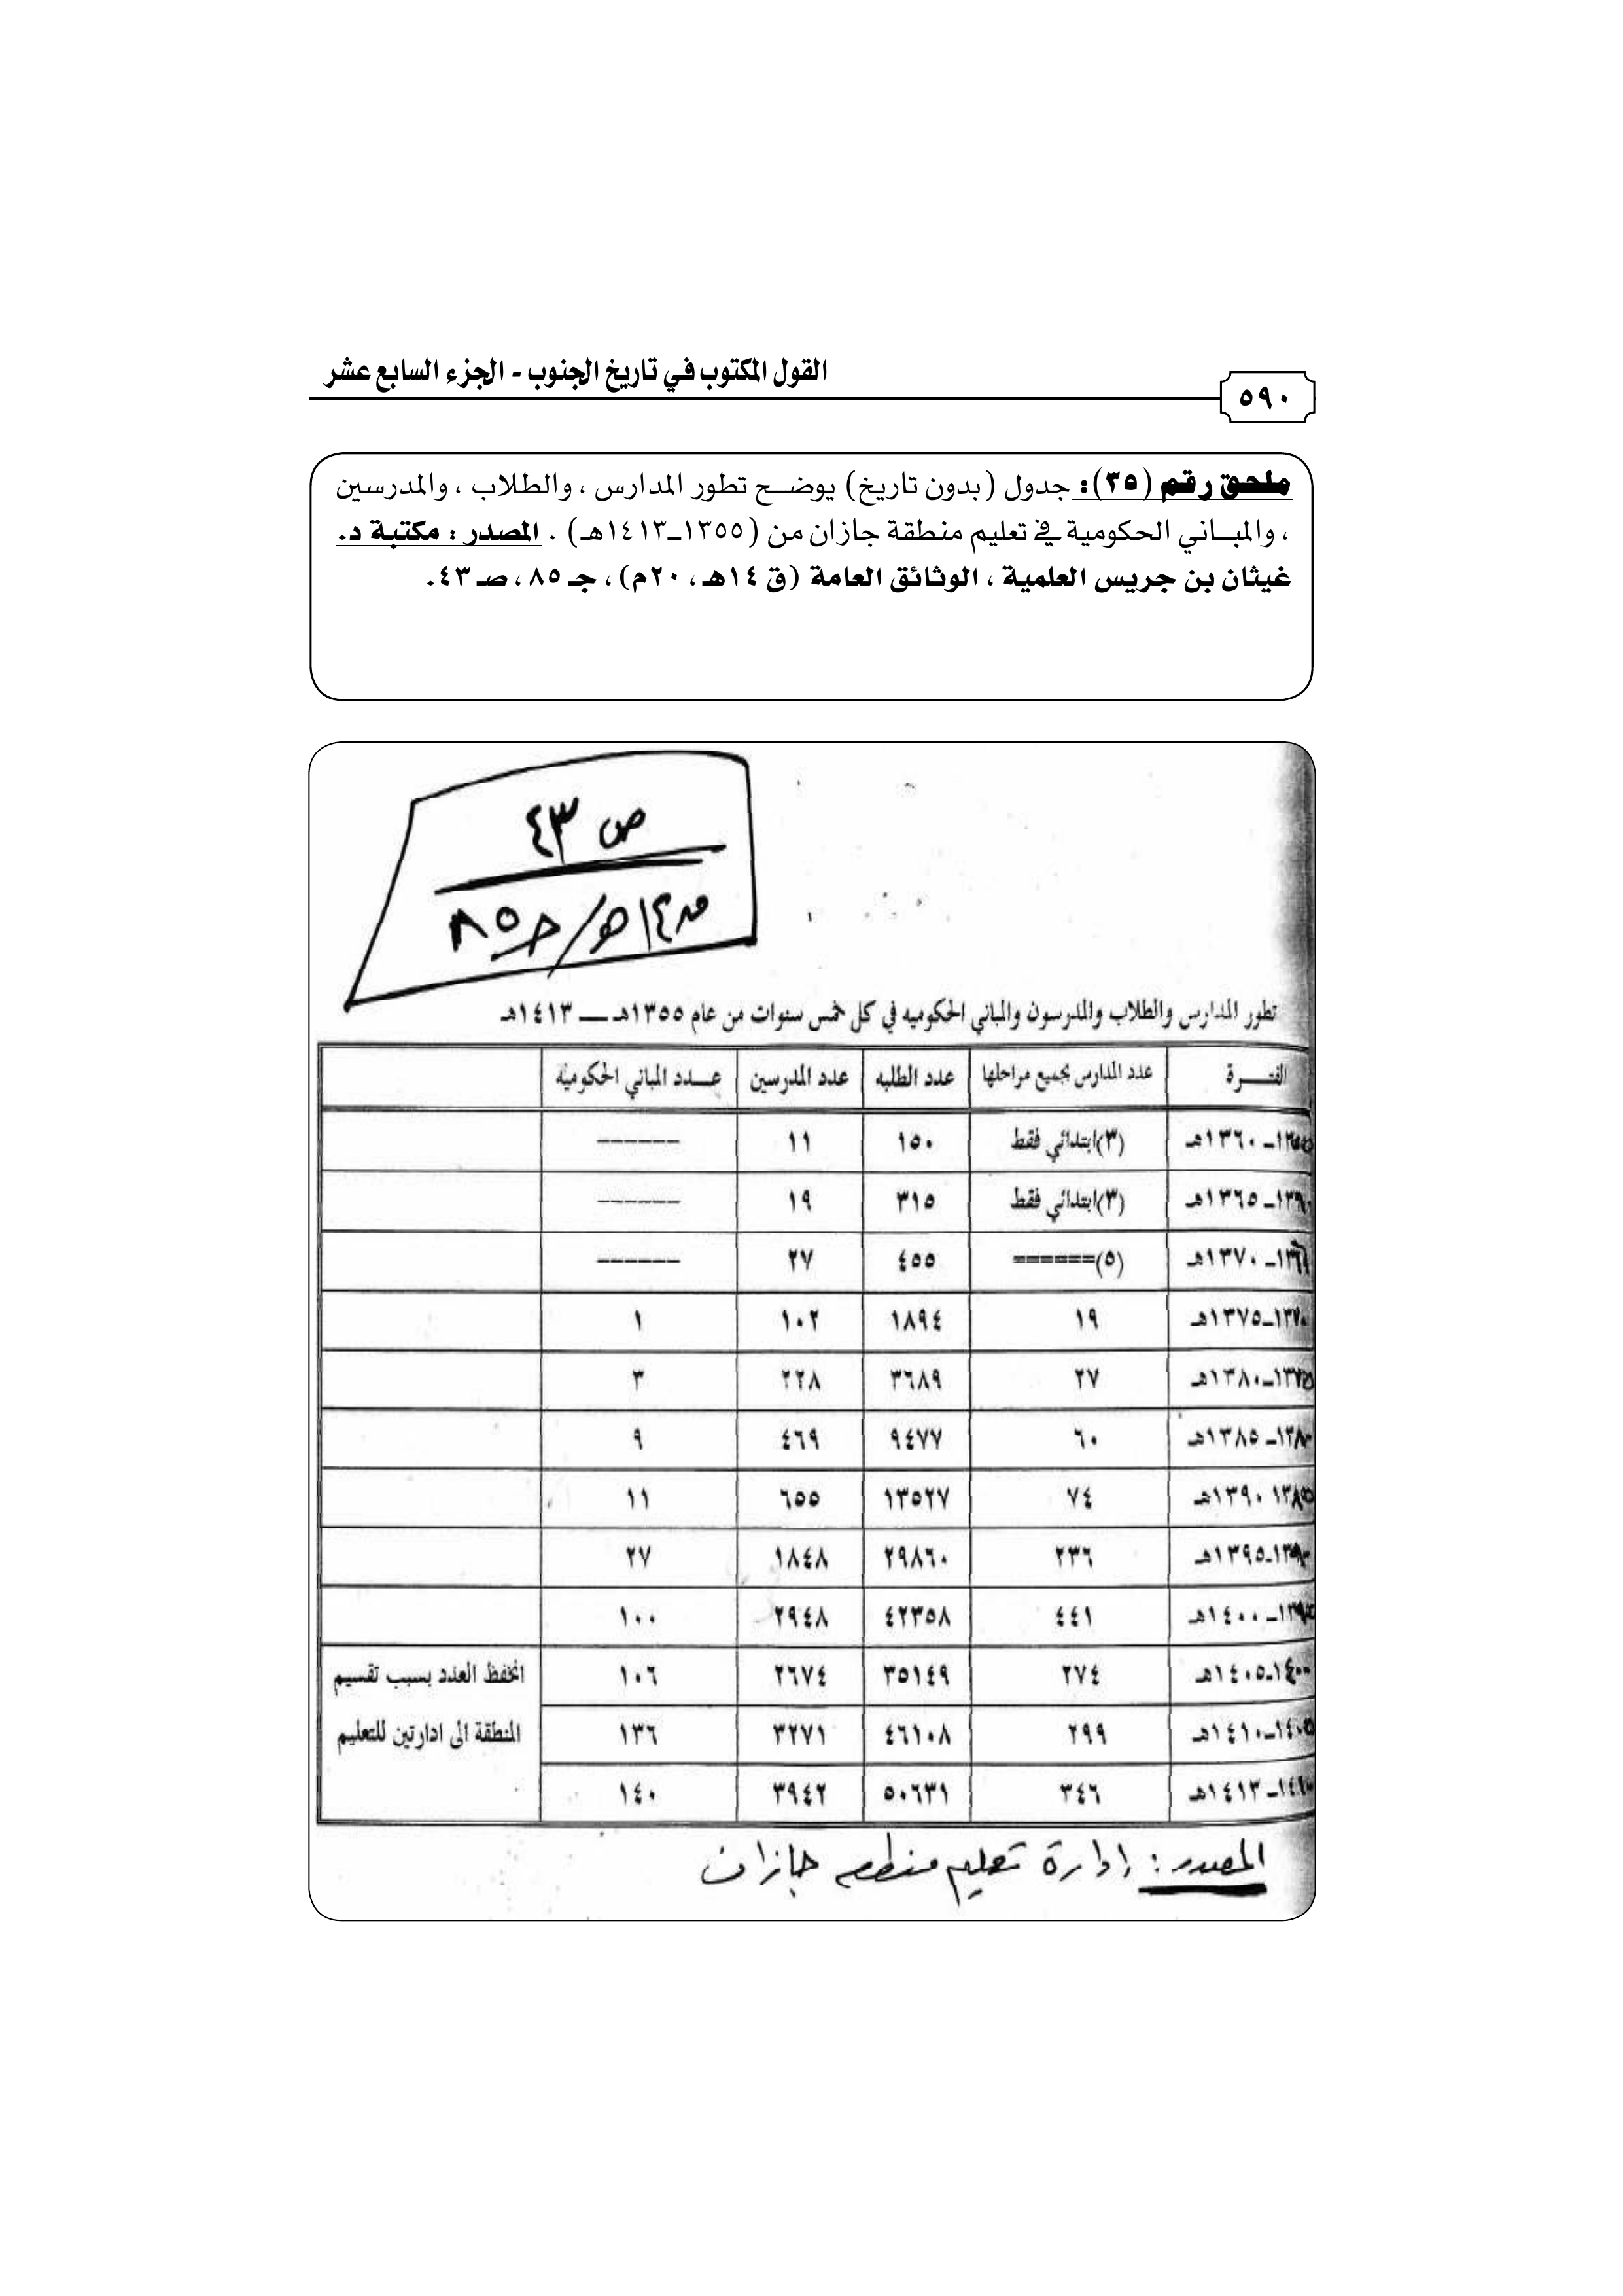 القول المكتوب في تاريخ الجنوب - الجزء السابع عشر
٥٩٠
ملحق رقم (٣٥): جدول (بدون تاريخ) يوضح تطور المدارس ، والطلاب ، والمدرسين
، والمباني الحكومية في تعليم منطقة جازان من (١٣٥٥ـ١٤١٣هـ) . المصدر : مكتبة د.
غيثان بن جريس العلمية ، الوثائق العامة (ق ١٤هـ ، ٢٠م) ، جـ ٨٥ ، صـ ٤٣.
ص ٤٣
ق ١٤هـ/ جـ ٨٥
تطور المدارس والطلاب والمدرسون والمباني الحكوميه في كل خمس سنوات من عام ١٣٥٥هـ ــ ١٤١٣هـ
الفترة عدد المدارس بجميع مراحلها عدد الطلبه عدد المدرسين عدد المباني الحكوميّة
١٣٥٥ـ١٣٦٠هـ (٣)ابتدائي فقط ١٥٠ ١١ ------
١٣٦٠ـ١٣٦٥هـ (٣)ابتدائي فقط ٣١٥ ١٩ ------
١٣٦٥ـ١٣٧٠هـ (٥)====== ٤٥٥ ٢٧ ------
١٣٧٠ـ١٣٧٥هـ ١٩ ١٨٩٤ ١٠٢ ١
١٣٧٥ـ١٣٨٠هـ ٢٧ ٣٦٨٩ ٢٢٨ ٣
١٣٨٠ـ١٣٨٥هـ ٦٠ ٩٤٧٧ ٤٦٩ ٩
١٣٨٥ ١٣٩٠هـ ٧٤ ١٣٥٢٧ ٦٥٥ ١١
١٣٩٠ـ١٣٩٥هـ ٢٣٦ ٢٩٨٦٠ ١٨٤٨ ٢٧
١٣٩٥ـ١٤٠٠هـ ٤٤١ ٤٢٣٥٨ ٢٩٤٨ ١٠٠
١٤٠٠ـ١٤٠٥هـ ٢٧٤ ٣٥١٤٩ ٢٦٧٤ ١٠٦ انخفظ العدد بسبب تقسيم
١٤٠٥ـ١٤١٠هـ ٢٩٩ ٤٦١٠٨ ٣٢٧١ ١٣٦ المنطقة الى ادارتين للتعليم
١٤١٠ـ١٤١٣هـ ٣٤٦ ٥٠٦٣١ ٣٩٤٢ ١٤٠
المصدر : إدارة تعليم منطقه جازان